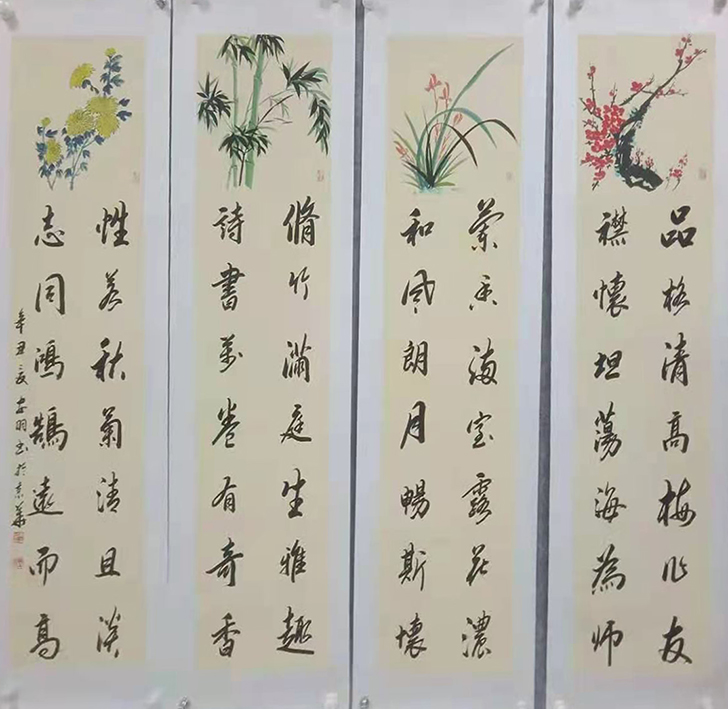 品格清高梅作友
襟懷坦蕩海為師
蘭香滿室露花濃
和风朗月暢斯懷
脩竹滿庭生雅趣
詩書萬卷有奇香
性若秋菊清且淡
志同鴻鵠遠而高
辛丑夏明书於京華